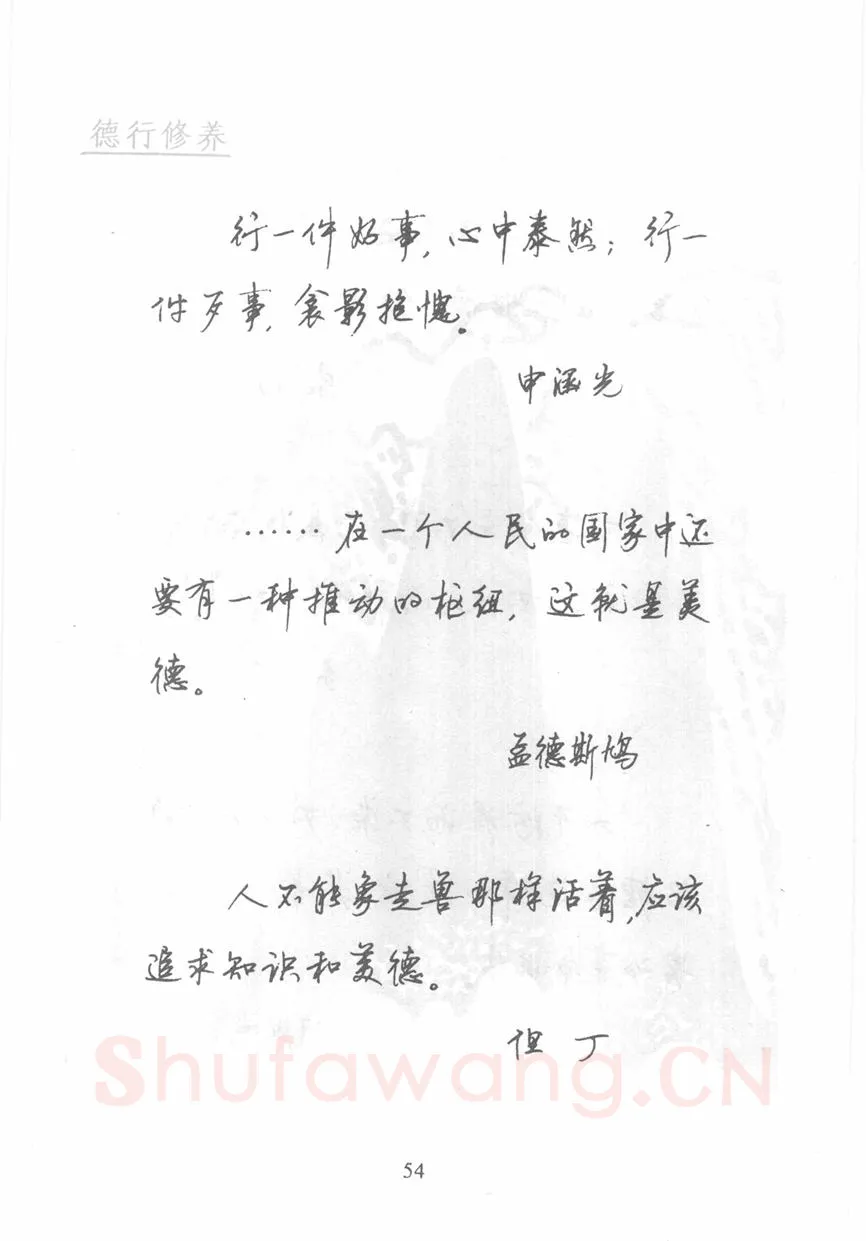 德行修养
行一件好事,心中泰然;行一
件歹事,衾影抱愧。
申涵光
……在一个人民的国家中还
要有一种推动的枢纽,这就是美
德。
孟德斯鸠
人不能象走兽那样活着,应该
追求知识和美德。
但丁
Shufawang.CN
54